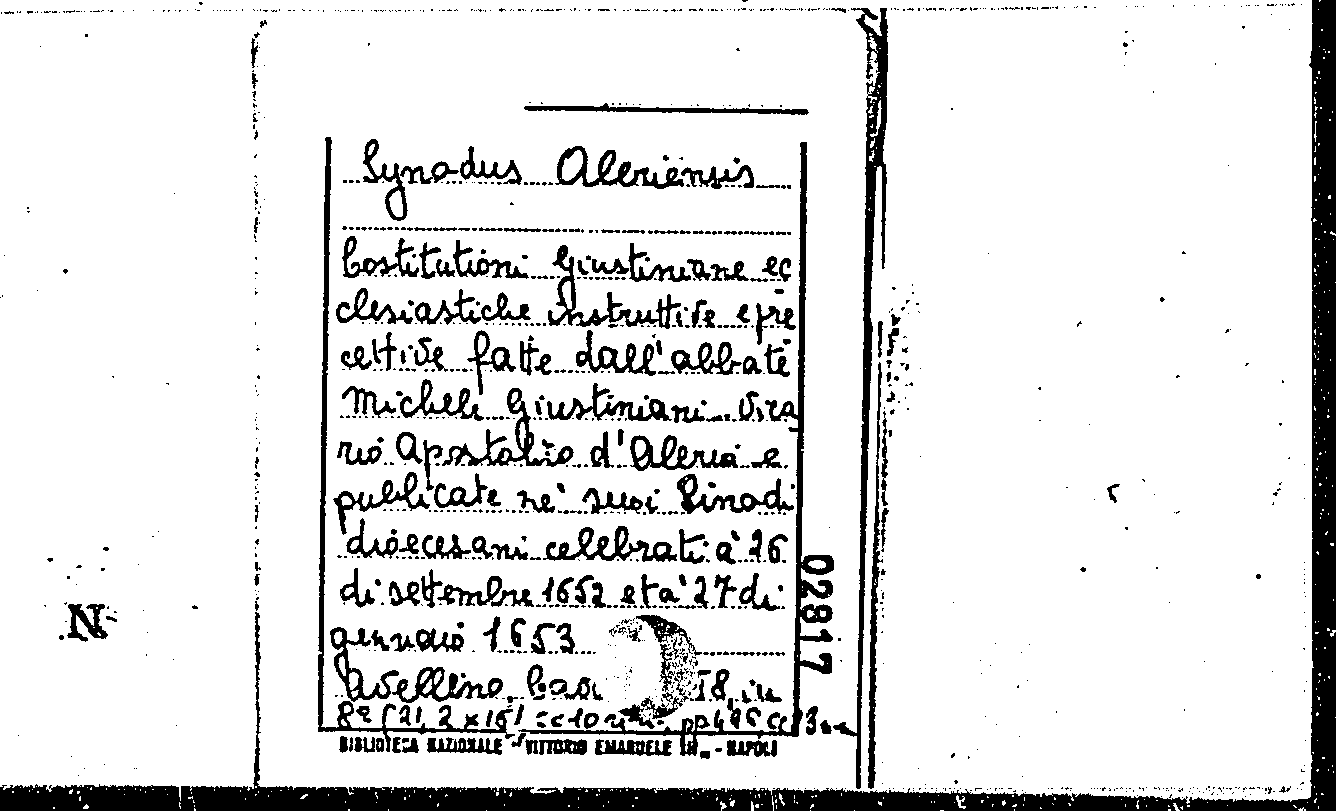 Synodus Aleriensis
Costitutioni Giustiniane ec
clesiastiche instruttive e pre
cettive fatte dall'abbate
Michele Giustiniani Vica
rio Apostolico d'Aleria e
publicate ne' suoi Sinodi
dioecesani celebrati a' 26
di settembre 1652 et a' 27 di
gennaio 1653
Avellino, 
8º (21,2 x 15) cc 10
BIBLIOTECA NAZIONALE - VITTORIO EMANUELE III - NAPOLI
02817
N